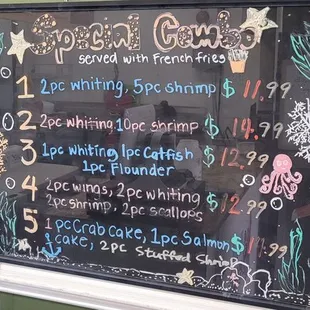 Special Combo
served with French fries
1 2pc whiting, 5pc shrimp $11.99
2 2pc whiting, 10pc shrimp $14.99
3 1pc whiting 1pc Catfish $12.99
1pc Flounder
4 2pc wings, 2pc whiting $12.99
2pc shrimp, 2pc scallops
5 1pc Crab Cake, 1pc Salmon
Cake, 2pc Stuffed Shrimp